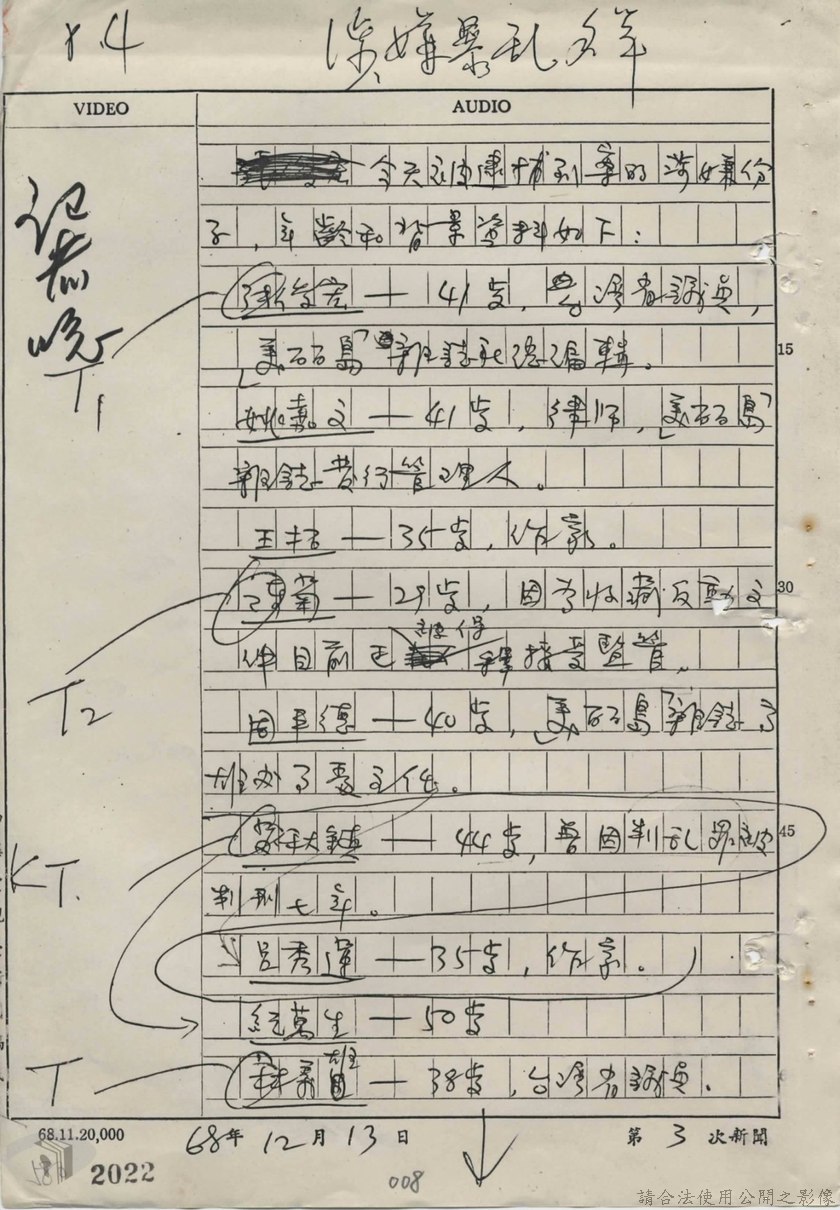 8.4
涉嫌暴乱
VIDEO
AUDIO
今天被逮捕到案的涉嫌份
子，年齡和背景資料如下：
張俊宏—41歲，台灣省議員，
「美麗島」雜誌社總編輯。
15
姚嘉文—41歲，律師，「美麗島」
雜誌發行管理人。
王拓—35歲，作家。
陳菊—29歲，因為收藏反動文
30
件目前已 被保
釋接受監管。
周平德—40歲，「美麗島」雜誌高
雄辦事處主任。
蔡有全
44歲，曾因判乱罪被
45
判刑七年。
呂秀蓮—35歲，作家。
紀萬生—50歲
林義雄—38歲，台灣省議員。
記者
晚
T1
T2
KT.
T
68.11.20,000
68年12月13日
第3次新聞
2022
008
請合法使用公開之影像